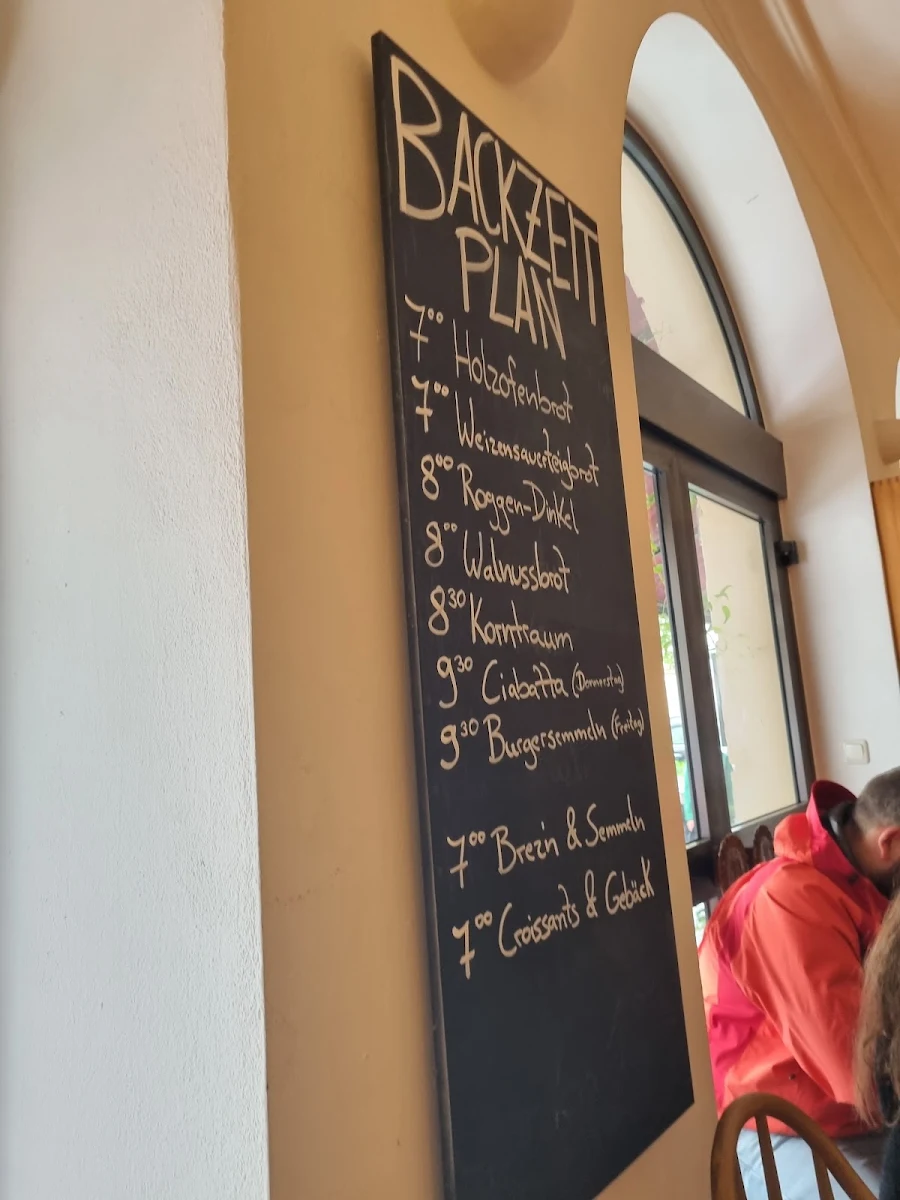 BACKZEIT
PLAN
7⁰⁰ Holzofenbrot
7⁰⁰ Weizensauerteigbrot
8⁰⁰ Roggen-Dinkel
8⁰⁰ Walnussbrot
8³⁰ Korntraum
9³⁰ Ciabatta (Donnerstag)
9³⁰ Burgersemmeln (Freitag)
7⁰⁰ Brezn & Semmeln
7⁰⁰ Croissants & Gebäck